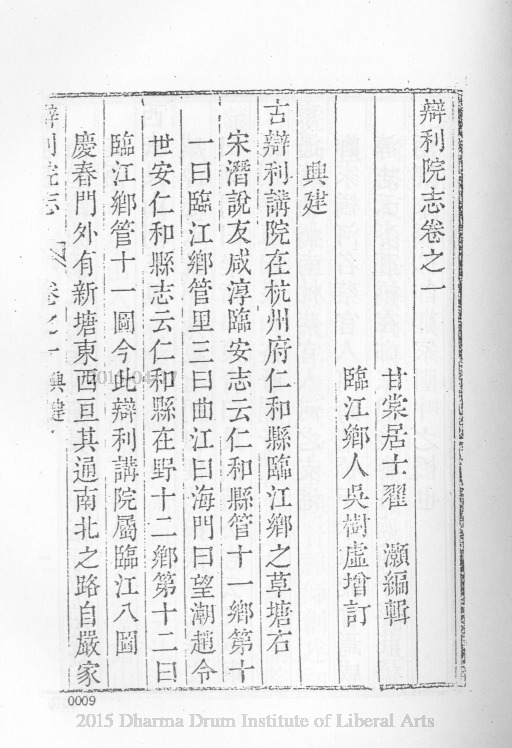 辯利院志卷之一
甘棠居士翟　灝編輯
臨江鄉人吳樹虛增訂
興建
古辯利講院在杭州府仁和縣臨江鄉之草塘右
宋潛說友咸淳臨安志云仁和縣管十一鄉第十
一曰臨江鄉管里三曰曲江曰海門曰望潮趙令
世安仁和縣志云仁和縣在野十二鄉第十二曰
臨江鄉管十一圖今此辯利講院屬臨江八圖
慶春門外有新塘東西亘其通南北之路自嚴家
辯利院志　卷之一　興建　一
0009
2015 Dharma Drum Institute of Liberal Arts